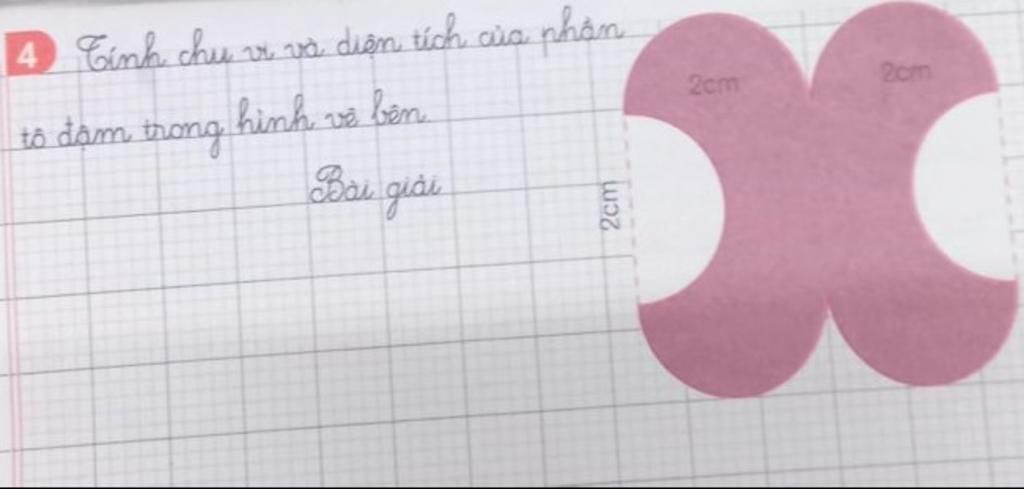 4 Tính chu vi và diện tích của phần
tô đậm trong hình vẽ bên
Bài giải
2cm
2cm
2cm